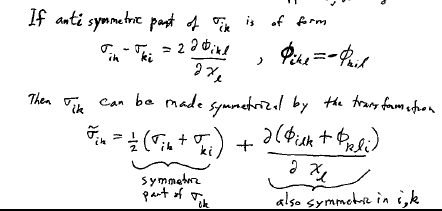 If antisymmetric part of σ_ik is of form
σ_ik - σ_ki = 2 ∂φ_ikl / ∂x_l , φ_ikl = -φ_kil
Then σ_ik can be made symmetrical by the transformation
σ̃_ik = 1/2 (σ_ik + σ_ki) + ∂(φ_ilk + φ_kli) / ∂x_l
symmetric
part of σ_ik
also symmetric in i,k